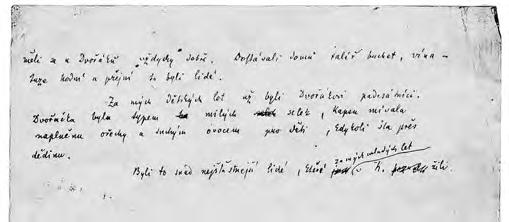 měli se u Dvořáků vždycky dobře. Dostávali domů talíř buchet, vína –
tuze hodní a příjmí to byli lidé.
Za mých dětských let už byli Dvořákovi padesátníci.
Dvořáčka byla typem milých selek, kapsu mívala
naplněnu ořechy a suchým ovocem pro děti, kdykoli šla přes
dědinu.
za mých mladých let
Byli to snad nejšťastnější lidé, kteří v H. žili.